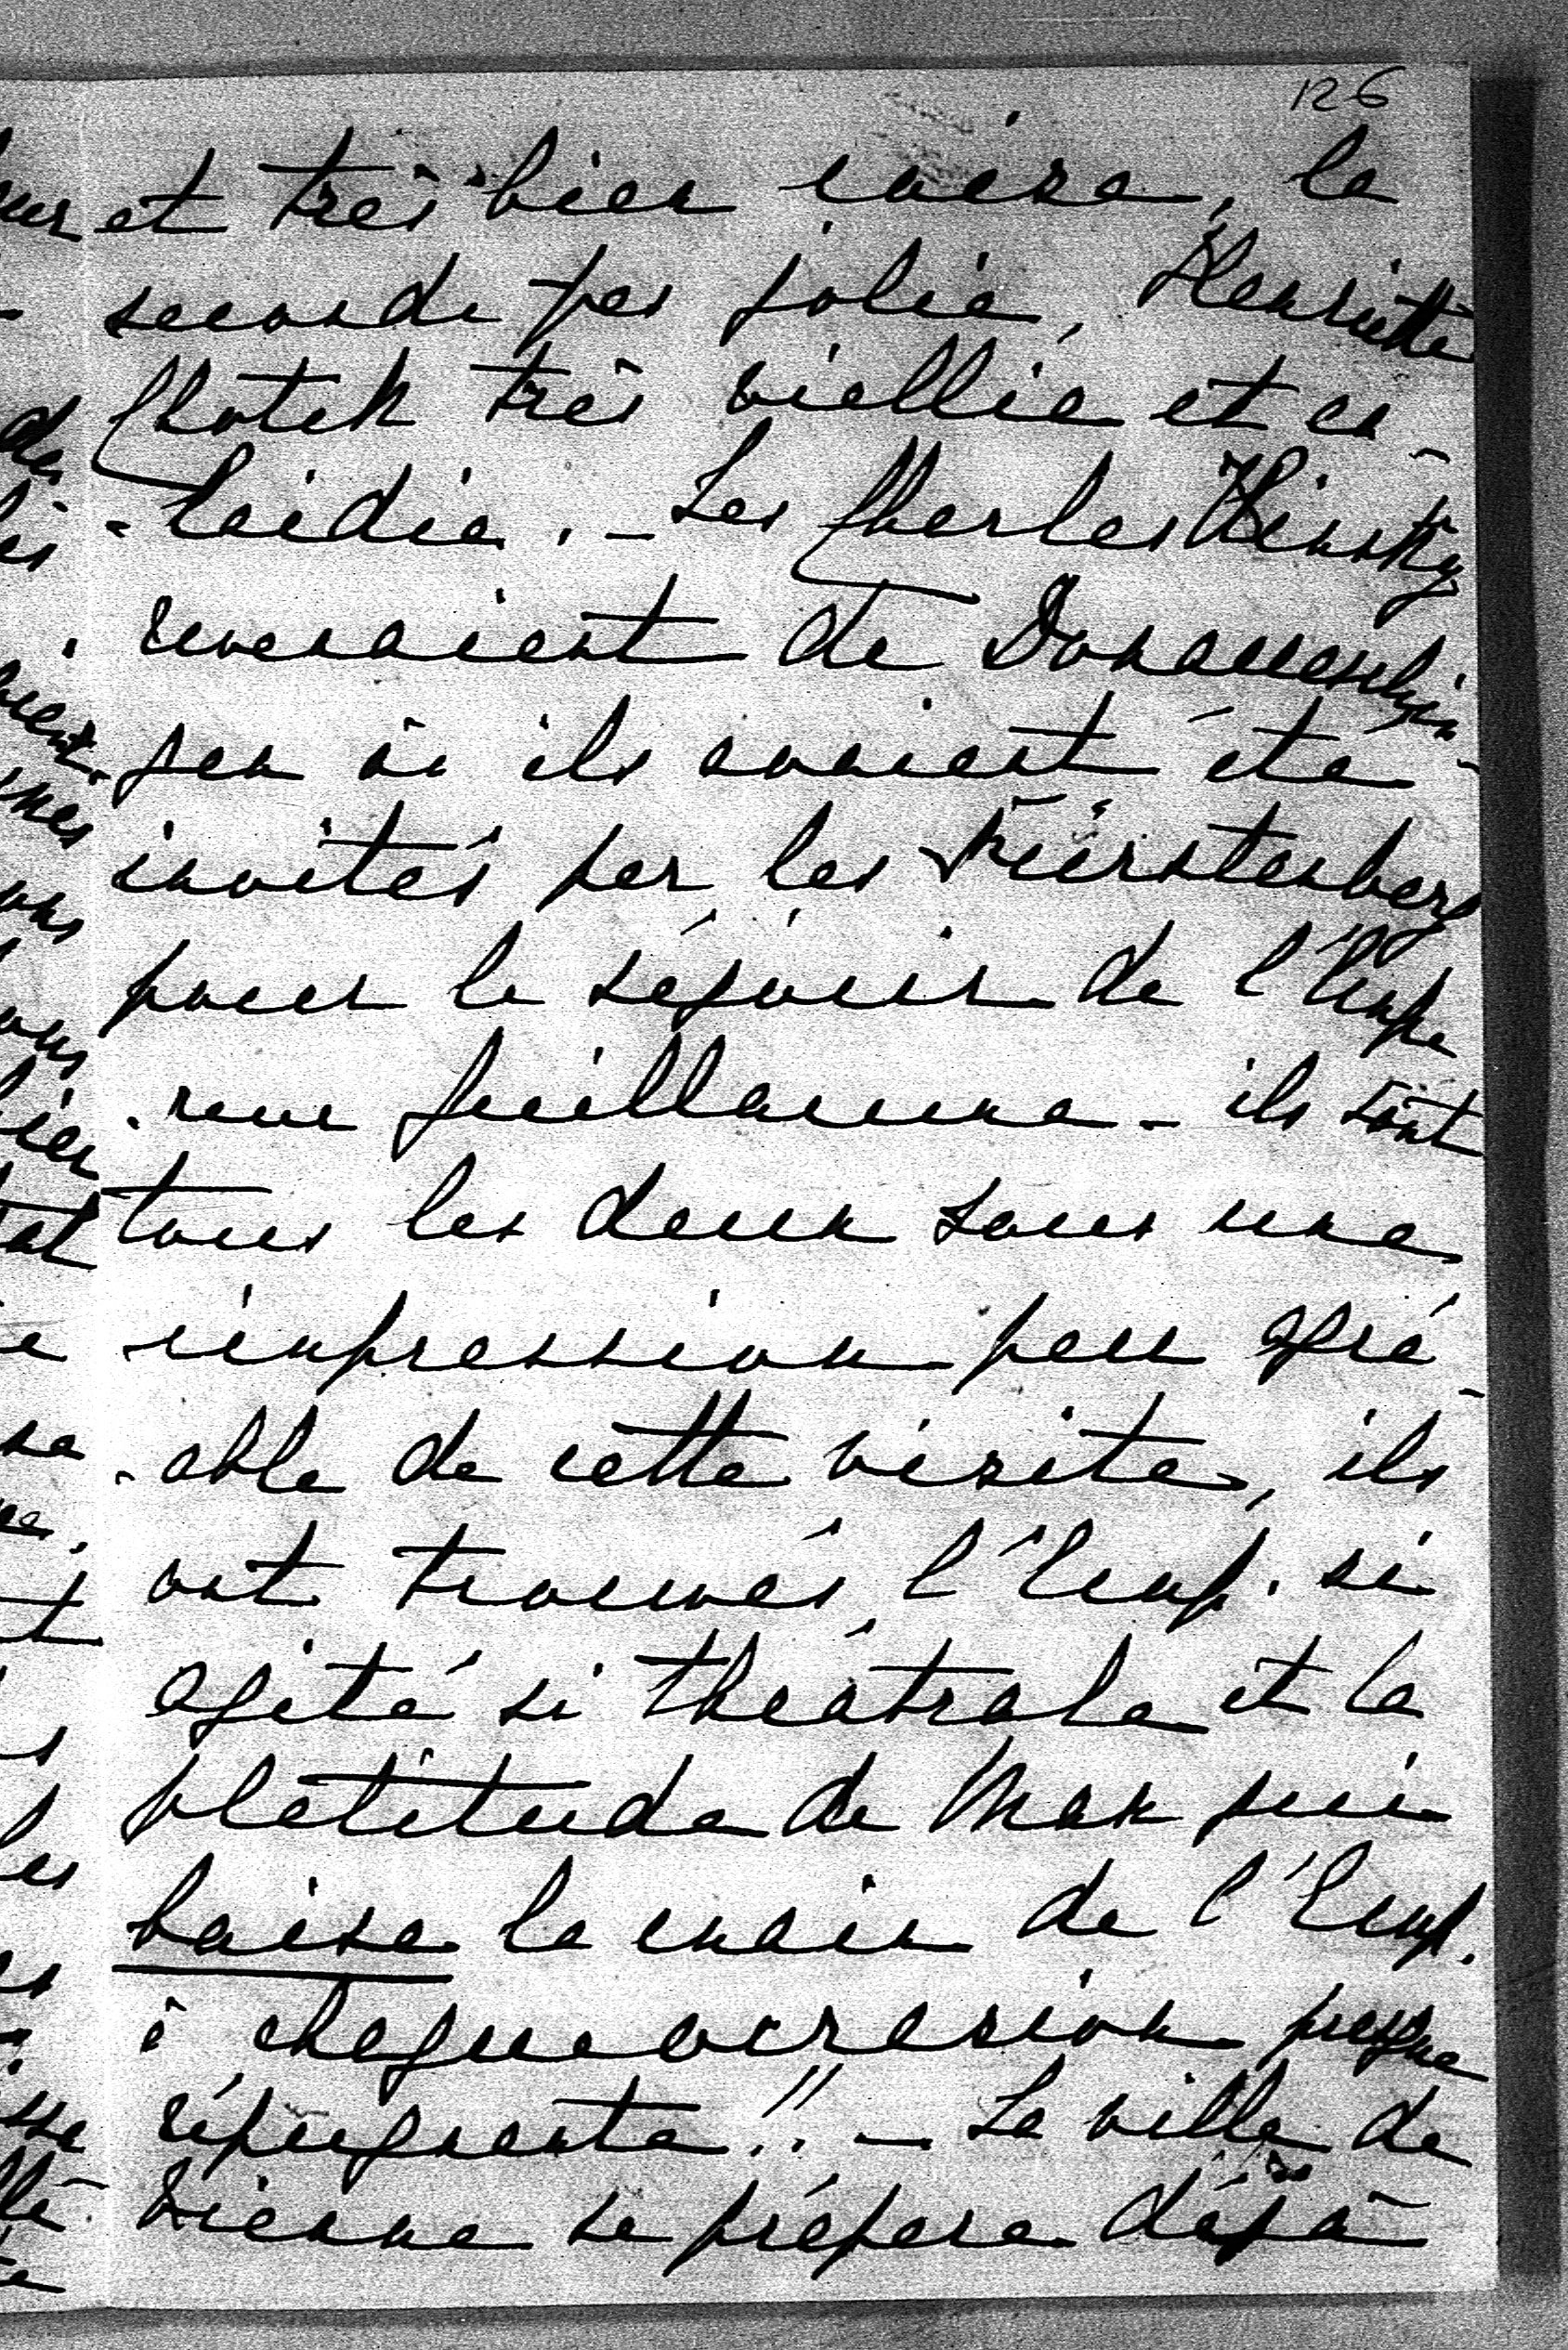 126
et très bien mise, la
seconde pas jolie, Henriette
Chotek très viellie et en-
-laidie. - Les Charles Kinsky
revenaient de Donaueschin-
gen où ils avaient été
invités par les Fürstenberg
pour le séjour de l'Empe
-reur Guillaume - ils sont
tous les deux sous une
impression peu agré-
-able de cette visite, ils
ont trouvés l'Emp. si
agité si théatrale et la
platitude de Max qui
baise la main de l'Emp.
à chaque occasion presque
répugnante!! - La ville de
Vienne se prépare déjà